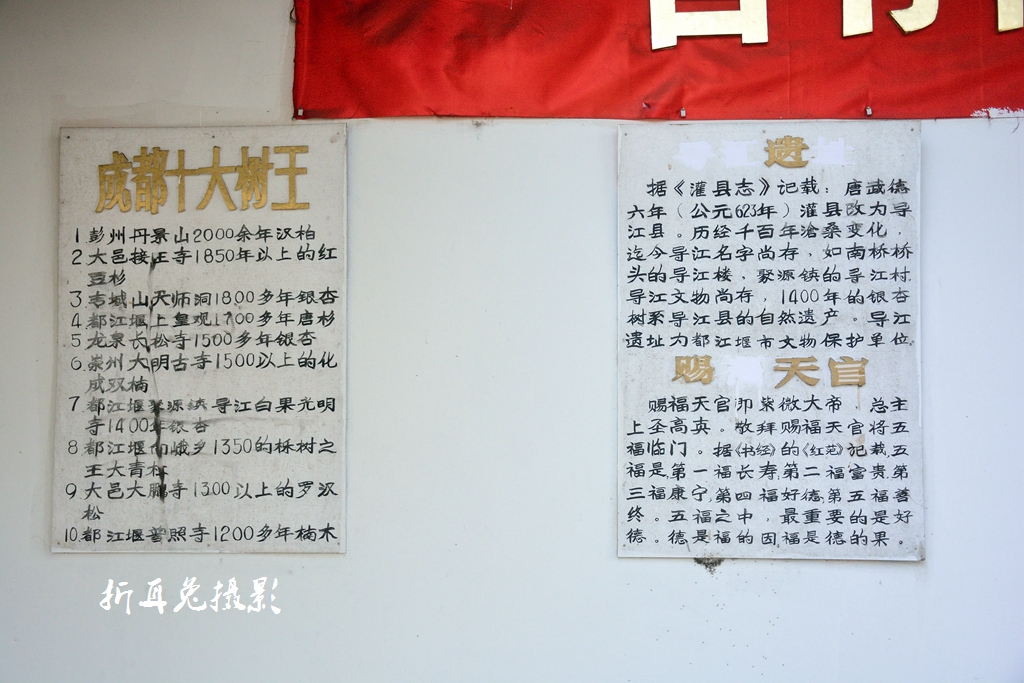 成都十大树王
1 彭州丹景山2000余年汉柏
2 大邑接王寺1850年以上的红
豆杉
3 青城山天师洞1800多年银杏
4 都江堰上皇观1700多年唐杉
5 龙泉长松寺1500多年银杏
6 崇州大明古寺1500以上的化
成双楠
7 都江堰聚源镇导江白果光明
寺1400年银杏
8 都江堰向峨乡1350的栎树之
王大青杠
9 大邑大鹏寺1300以上的罗汉
松
10.都江堰普照寺1200多年楠木
遗
据《灌县志》记载：唐武德
六年（公元623年）灌县改为导
江县。历经千百年沧桑变化，
迄今导江名字尚存，如南桥桥
头的导江楼，聚源镇的导江村，
导江文物尚存，1400年的银杏
树系导江县的自然遗产。导江
遗址为都江堰市文物保护单位。
赐 天官
赐福天官即紫微大帝，总主
上圣高真。敬拜赐福天官将五
福临门。据《书经》的《红范》记载，五
福是，第一福长寿，第二福富贵，第
三福康宁，第四福好德，第五福善
终。五福之中，最重要的是好
德。德是福的因福是德的果。
折耳兔摄影